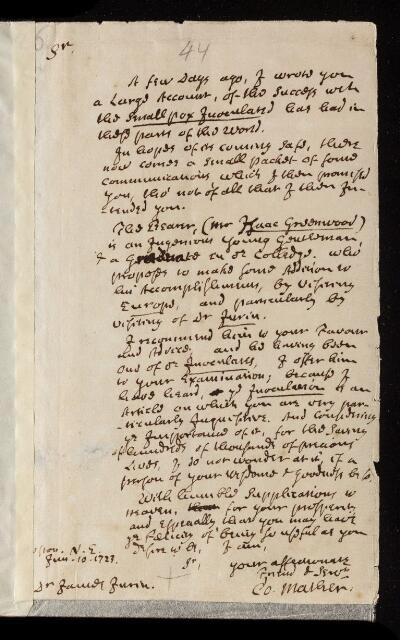 44
Sr.
A few Days ago, I wrote you
a Large Account, of the Success which
the Small pox Inoculated has had in
these parts of the World.
In hopes of its coming safe, there
now comes a small packet of some
communications which I then promised
you, tho' not of all that I then In-
tended you.
The Bearer, (Mr Isaac Greenwood)
is an Ingenious Young Gentleman,
& a Graduate in or Colledge. who
proposes to make some Addition to
his Accomplishments, by Visiting
Europe, and particularly by
visiting of Dr Jurin.
I recommend him to your Favour
and Advice; and he having been
one of or Inoculates, I offer him
to your Examination; because I
have heard, yt ye Inoculation is an
Article on which you are very par-
ticularly Inquisitive. And considering
ye Importance of it, for the Saving
of hundreds of thousands of precious
Lives, I do not wonder at it, if a
person of your wisdome & goodness be so.
With humble Supplications to
Heaven, for your prosperity
and Especially that you may have
ye felicity of being so useful as you
desire to be, I am,
Sr,
your affectionate
Friend & Servt
Co. Mather.
Boston. N. E.
Jun. 10. 1723.
Dr James Jurin.